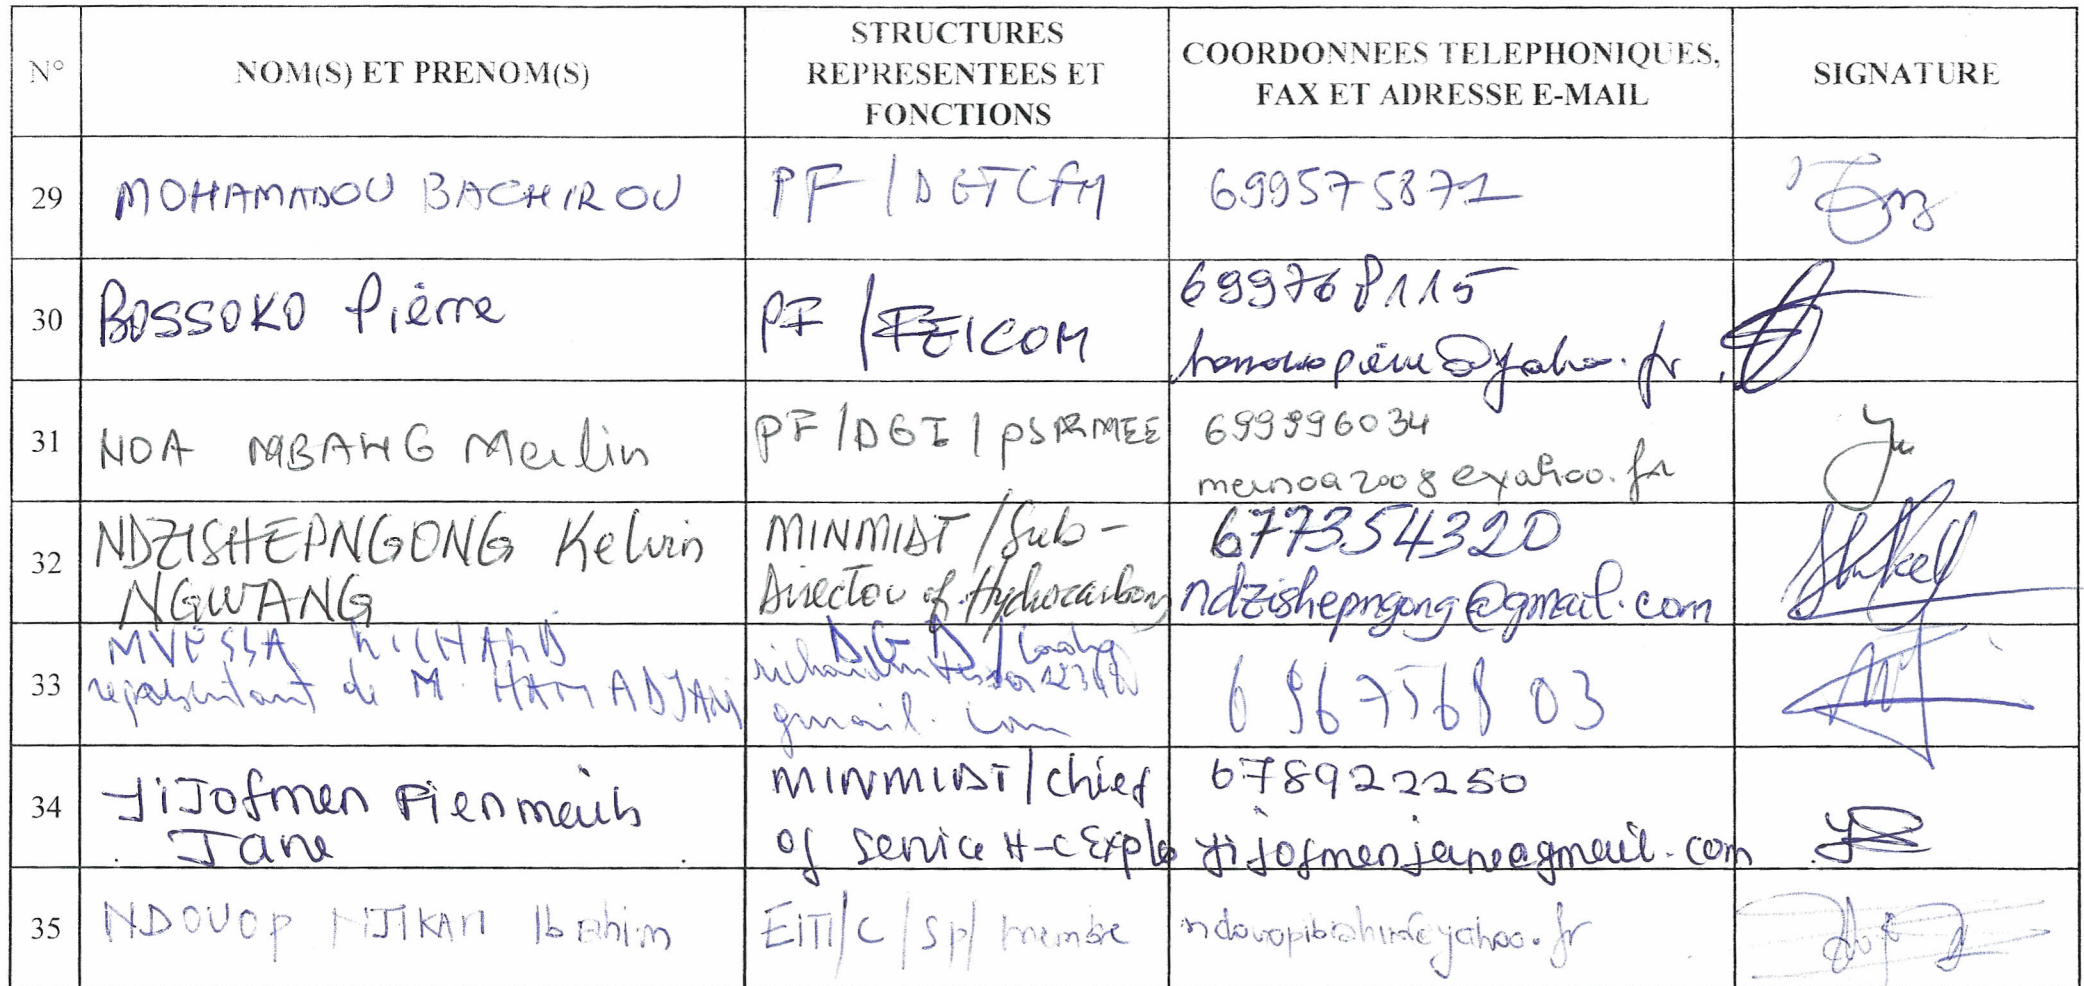 N°
NOM(S) ET PRENOM(S)
STRUCTURES
REPRESENTEES ET
FONCTIONS
COORDONNEES TELEPHONIQUES,
FAX ET ADRESSE E-MAIL
SIGNATURE
29
MOHAMADOU BACHIROU
PF / DGTCFM
699575871
30
BOSSOKO Pierre
PF / FEICOM
699768115
31
NOA MBANG Merlin
PF / DGI / PSRMEE
699996034
mernoa2008@yahoo.fr
32
NDZISHEPNGONG Kelvin
NGWANG
MINMIDT / Sub-
Director of Hydrocarbons
677354320
ndzishepngong@gmail.com
33
MVESSA RICHARD
représentant de M. HAMADJAM
DGD /
gmail.com
696756803
34
YiJofmen Pienmeih
Jane
MINMIDT / chief
of service H-C Explo
678922250
yijofmenjane@gmail.com
35
NDOUOP NJIKAM Ibrahim
EITI/C/SP/ membre
ndouopibrahim@yahoo.fr